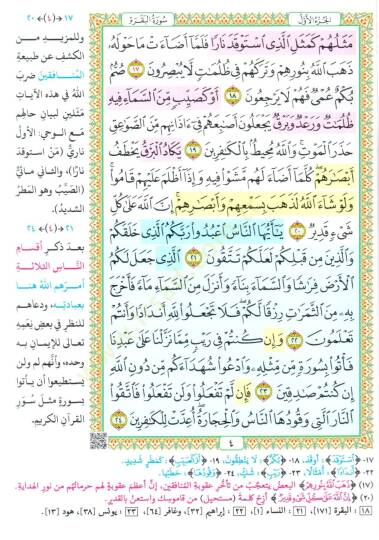 الجزء الأول
سورة البقرة
مَثَلُهُمْ كَمَثَلِ الَّذِي اسْتَوْقَدَ نَارًا فَلَمَّا أَضَاءَتْ مَا حَوْلَهُ
ذَهَبَ اللَّهُ بِنُورِهِمْ وَتَرَكَهُمْ فِي ظُلُمَاتٍ لَّا يُبْصِرُونَ ١٧ صُمٌّ
بُكْمٌ عُمْيٌ فَهُمْ لَا يَرْجِعُونَ ١٨ أَوْ كَصَيِّبٍ مِّنَ السَّمَاءِ فِيهِ
ظُلُمَاتٌ وَرَعْدٌ وَبَرْقٌ يَجْعَلُونَ أَصَابِعَهُمْ فِي آذَانِهِم مِّنَ الصَّوَاعِقِ
حَذَرَ الْمَوْتِ وَاللَّهُ مُحِيطٌ بِالْكَافِرِينَ ١٩ يَكَادُ الْبَرْقُ يَخْطَفُ
أَبْصَارَهُمْ كُلَّمَا أَضَاءَ لَهُم مَّشَوْا فِيهِ وَإِذَا أَظْلَمَ عَلَيْهِمْ قَامُوا
وَلَوْ شَاءَ اللَّهُ لَذَهَبَ بِسَمْعِهِمْ وَأَبْصَارِهِمْ إِنَّ اللَّهَ عَلَى كُلِّ
شَيْءٍ قَدِيرٌ ٢٠ يَا أَيُّهَا النَّاسُ اعْبُدُوا رَبَّكُمُ الَّذِي خَلَقَكُمْ
وَالَّذِينَ مِن قَبْلِكُمْ لَعَلَّكُمْ تَتَّقُونَ ٢١ الَّذِي جَعَلَ لَكُمُ
الْأَرْضَ فِرَاشًا وَالسَّمَاءَ بِنَاءً وَأَنزَلَ مِنَ السَّمَاءِ مَاءً فَأَخْرَجَ
بِهِ مِنَ الثَّمَرَاتِ رِزْقًا لَّكُمْ فَلَا تَجْعَلُوا لِلَّهِ أَندَادًا وَأَنتُمْ
تَعْلَمُونَ ٢٢ وَإِن كُنتُمْ فِي رَيْبٍ مِّمَّا نَزَّلْنَا عَلَى عَبْدِنَا
فَأْتُوا بِسُورَةٍ مِّن مِّثْلِهِ وَادْعُوا شُهَدَاءَكُم مِّن دُونِ اللَّهِ
إِن كُنتُمْ صَادِقِينَ ٢٣ فَإِن لَّمْ تَفْعَلُوا وَلَن تَفْعَلُوا فَاتَّقُوا
النَّارَ الَّتِي وَقُودُهَا النَّاسُ وَالْحِجَارَةُ أُعِدَّتْ لِلْكَافِرِينَ ٢٤
٤
١٧ (٤) ٢٠
وللمزيد من
الكشف عن طبيعة
المنافقين ضرب
الله في هذه الآيات
مثلين لبيان حالهم
مع الوحي: الأول
ناري (من استوقد
نارًا)، والثاني مائي
(الصيّب وهو المطر
الشديد).
٢١ (٤) ٢٤
بعد ذكر أقسام
الناس الثلاثة
أمرهم الله هنا
بعبادته، ودعاهم
للنظر في بعض نعمه
تعالى للإيمان به
وحده، وأنهم لم ولن
يستطيعوا أن يأتوا
بسورة مثل سور
القرآن الكريم.
١٧- ﴿اسْتَوْقَدَ﴾: أوقد، ١٨- ﴿بُكْمٌ﴾: لا ينطقون، ١٩- ﴿أَوْ كَصَيِّبٍ﴾: كمطر شديد،
٢٢- ﴿أَندَادًا﴾: أمثالا، ٢٣- ﴿رَيْبٍ﴾: شك، ٢٤- ﴿وَقُودُهَا﴾: حطبها.
(١٧) ﴿ذَهَبَ اللَّهُ بِنُورِهِمْ﴾ البعض يتعجب من تأخر عقوبة المنافقين، إن أعظم عقوبة لهم حرمانهم من نور الهداية.
(٢٠) ﴿إِنَّ اللَّهَ عَلَى كُلِّ شَيْءٍ قَدِيرٌ﴾ أزح كلمة (مستحيل) من قاموسك واستعن بالقدير.
١٨: البقرة [١٧١]، ٢١: النساء [١]، ٢٢: إبراهيم [٣٢] وغافر [٦٤]، ٢٣: يونس [٣٨]، هود [١٣].